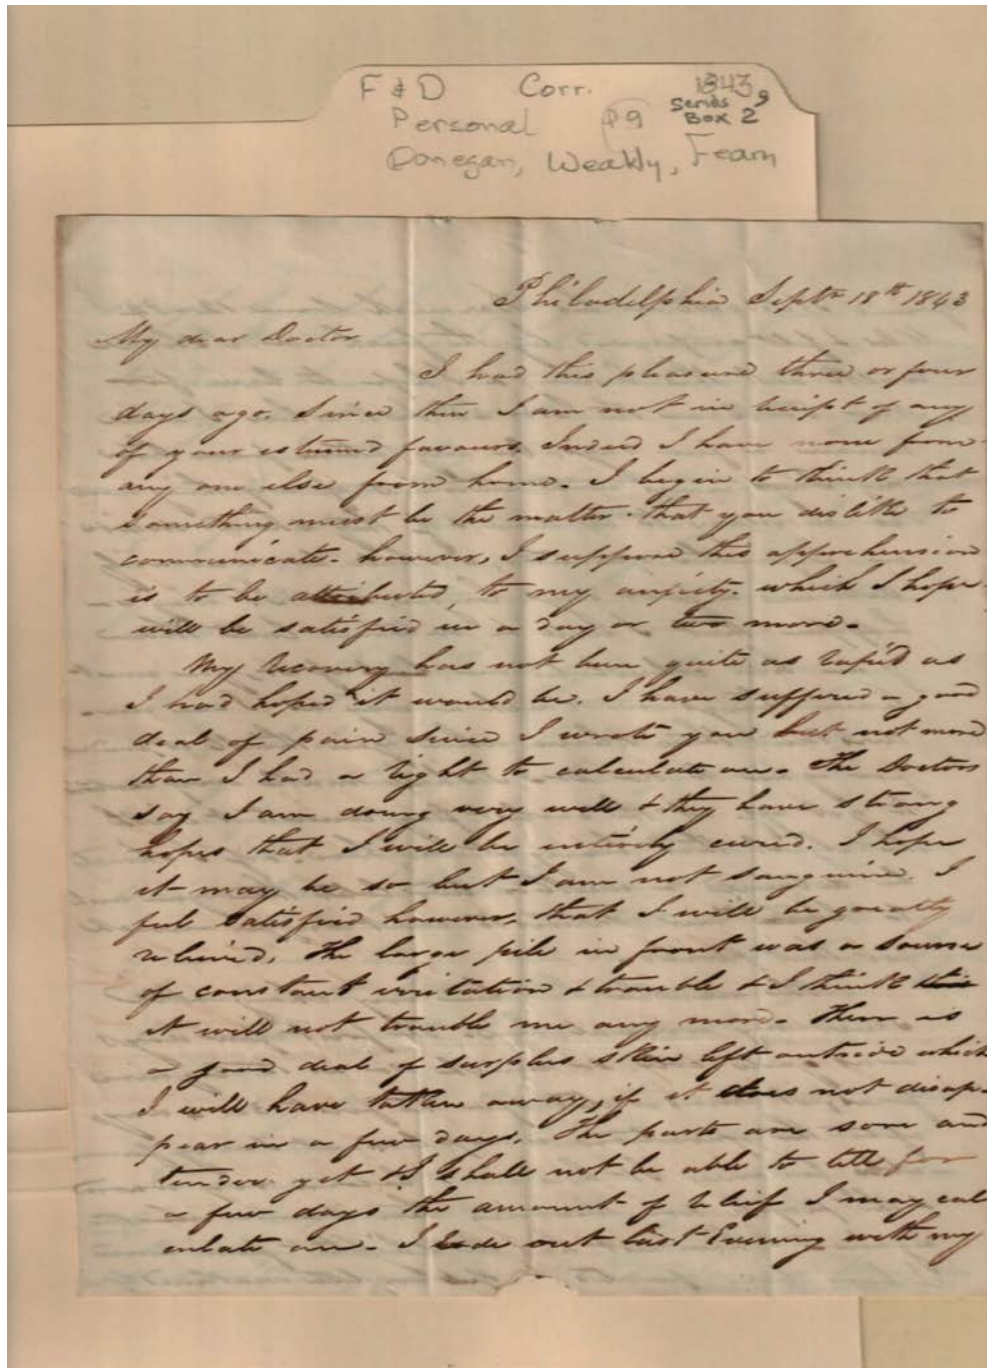 F & D Corr. 1843
Personal P9 Series 9
Box 2
Donegan, Weakly, Fearn
Philadelphia Septr 18th 1843
My dear Doctor
I had this pleasure three or four
days ago. Since then I am not in receipt of any
of your esteemed favours. Indeed I have none from
any one else from home. I begin to think that
something must be the matter that you dislike to
communicate. however, I suppose this apprehension
is to be attributed, to my anxiety. which I hope
will be satisfied in a day or two more.
My recovery has not been quite as rapid as
I had hoped it would be. I have suffered a good
deal of pain since I wrote you but not more
than I had a right to calculate on. The Doctors
say I am doing very well & they have strong
hopes that I will be entirely cured. I hope
it may be so but I am not sanguine. I
feel satisfied however, that I will be greatly
relieved. The large pile in front was a source
of constant irritation & trouble & I think
it will not trouble me any more. There is
a good deal of surplus skin left outside which
I will have taken away, if it does not disap-
pear in a few days. The parts are sore and
tender yet & I shall not be able to tell for
a few days the amount of relief I may cal
culate on. I rode out last Evening with my